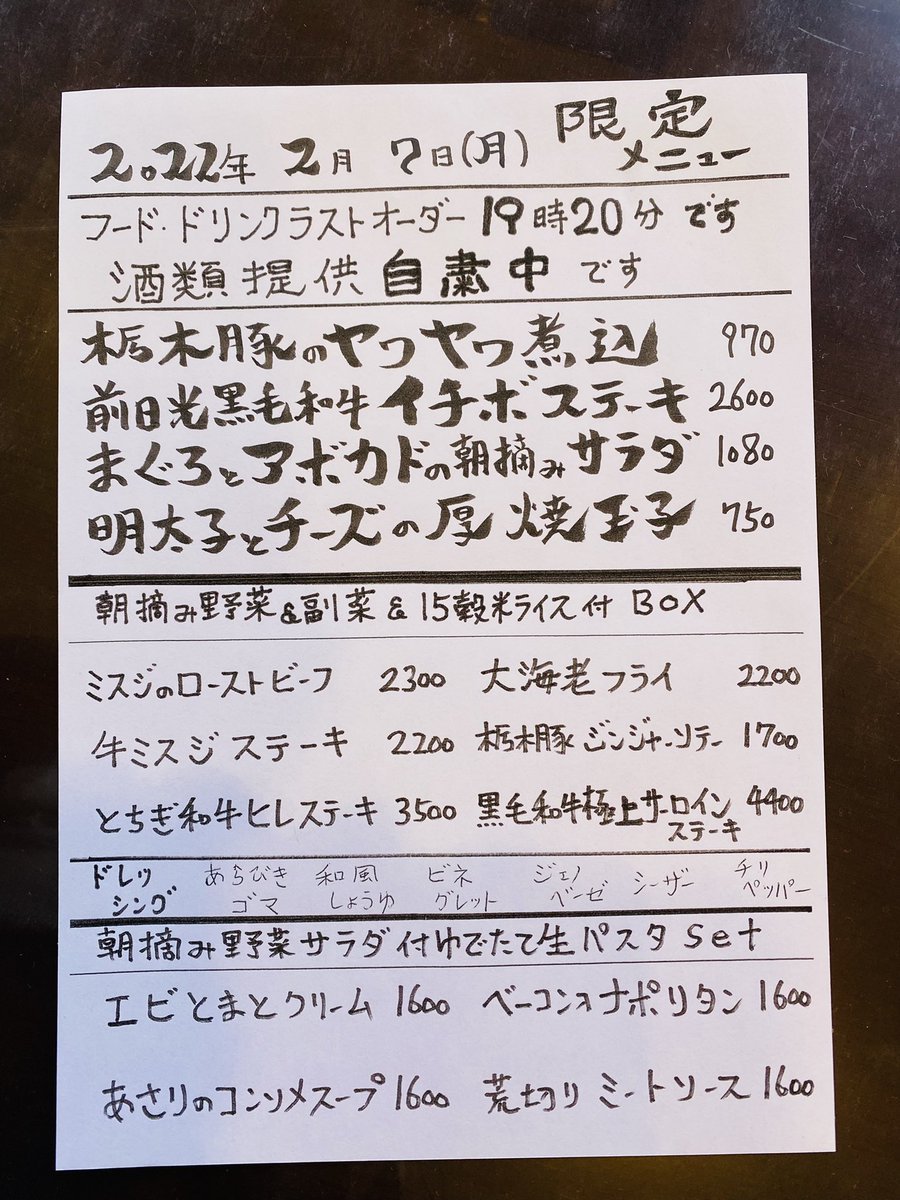 2022年 2月 7日(月) 限定メニュー
フード・ドリンクラストオーダー 19時20分 です
酒類提供 自粛中 です
栃木豚のヤワヤワ煮込 970
前日光黒毛和牛イチボステーキ 2600
まぐろとアボカドの朝摘みサラダ 1080
明太子とチーズの厚焼玉子 750
朝摘み野菜&副菜&15穀米ライス付 BOX
ミスジのローストビーフ 2300 大海老フライ 2200
牛ミスジステーキ 2200 栃木豚ジンジャーソテー 1700
とちぎ和牛ヒレステーキ 3500 黒毛和牛極上サーロインステーキ 4400
ドレッシング あらびきゴマ 和風しょうゆ ビネグレット ジェノベーゼ シーザー チリペッパー
朝摘み野菜サラダ付ゆでたて生パスタ set
エビとまとクリーム 1600 ベーコンのナポリタン 1600
あさりのコンソメスープ 1600 荒切りミートソース 1600